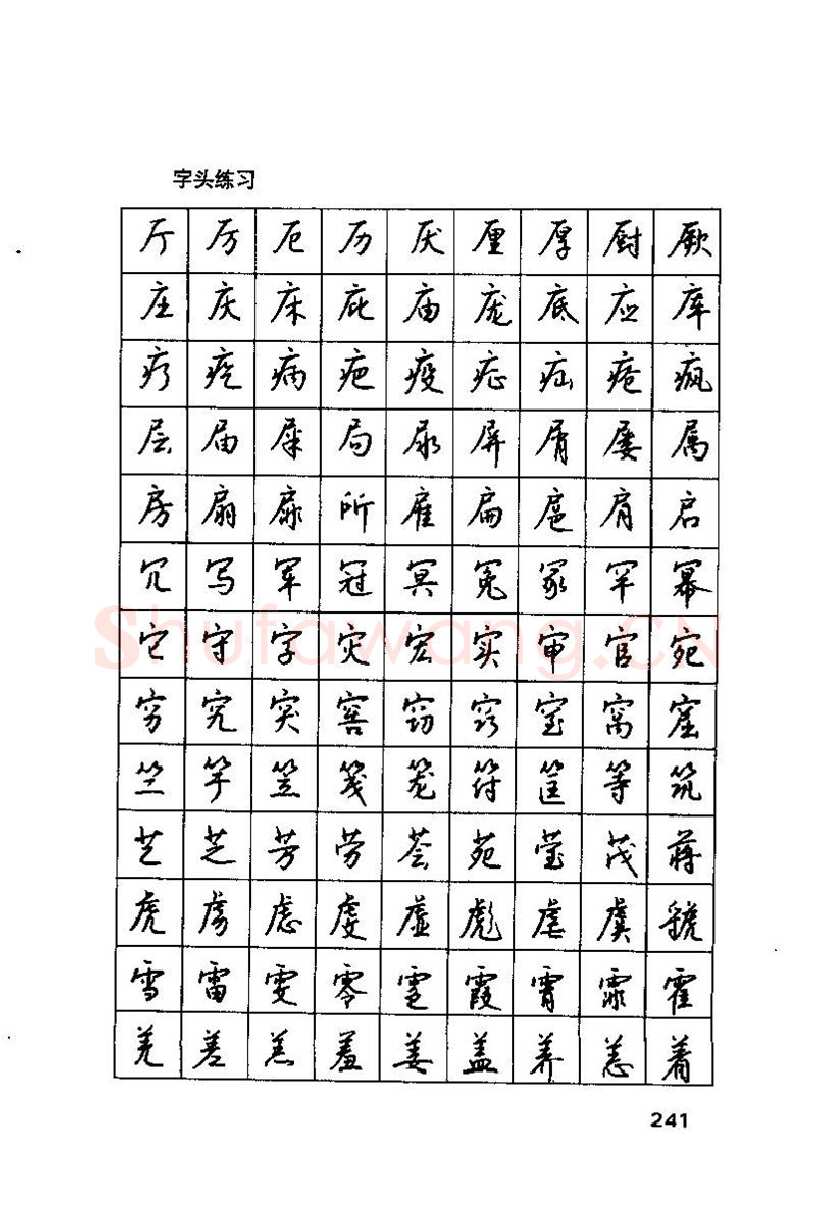 字头练习
厅 厉 厄 历 厌 厘 厚 厨 厥
庄 庆 床 庇 庙 庞 底 应 库
疗 疙 病 疤 疫 症 疝 疮 疯
层 届 屎 局 尿 屏 屑 屡 属
房 扇 扉 所 雇 扁 扈 肩 启
冗 写 军 冠 冥 冤 冢 罕 幂
它 守 字 灾 宏 实 审 官 宛
穷 究 突 窖 窃 窍 室 窝 窟
竺 竽 笠 笺 笼 符 筐 等 筑
艺 芝 芳 劳 荟 苑 莹 茂 蒋
虎 虏 虑 虔 虚 彪 虐 虞 虢
雪 雷 雯 零 霆 霞 霄 霏 霍
羌 差 羔 羞 姜 盖 养 恙 着
241
Shufawang.CN